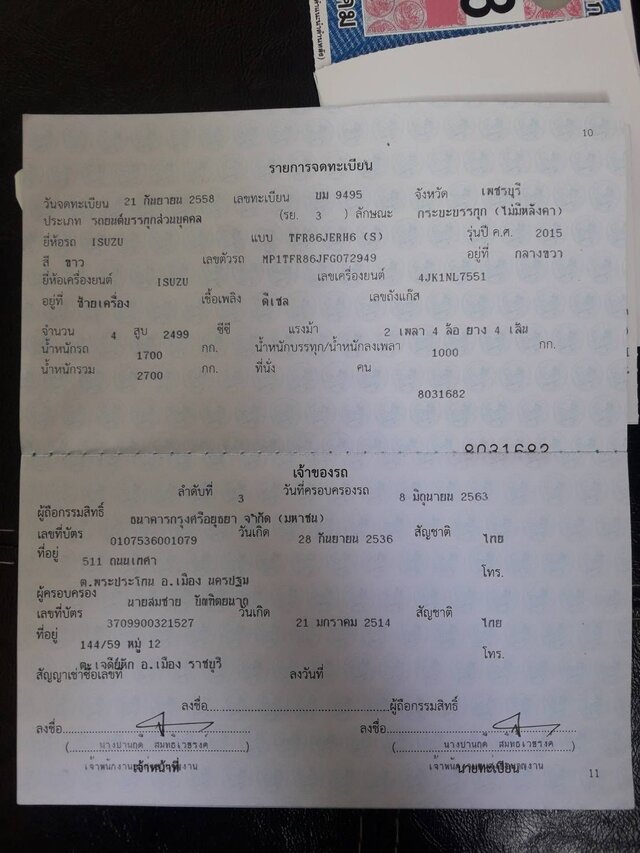 10
รายการจดทะเบียน
วันจดทะเบียน 21 กันยายน 2558 เลขทะเบียน บม 9495 จังหวัด เพชรบุรี
ประเภท รถยนต์บรรทุกส่วนบุคคล (รย. 3 ) ลักษณะ กระบะบรรทุก (ไม่มีหลังคา)
ยี่ห้อรถ ISUZU แบบ TFR86JERH6 (S) รุ่นปี ค.ศ. 2015
สี ขาว เลขตัวรถ MP1TFR86JFG072949 อยู่ที่ กลางขวา
ยี่ห้อเครื่องยนต์ ISUZU เลขเครื่องยนต์ 4JK1NL7551
อยู่ที่ ซ้ายเครื่อง เชื้อเพลิง ดีเซล เลขถังแก๊ส
จำนวน 4 สูบ 2499 ซีซี แรงม้า 2 เพลา 4 ล้อ ยาง 4 เส้น
น้ำหนักรถ 1700 กก. น้ำหนักบรรทุก/น้ำหนักลงเพลา 1000 กก.
น้ำหนักรวม 2700 กก. ที่นั่ง คน
8031682
8031682
เจ้าของรถ
ลำดับที่ 3 วันที่ครอบครองรถ 8 มิถุนายน 2563
ผู้ถือกรรมสิทธิ์ ธนาคารกรุงศรีอยุธยา จำกัด (มหาชน)
เลขที่บัตร 0107536001079 วันเกิด 28 กันยายน 2536 สัญชาติ ไทย
ที่อยู่ 511 ถนนเทศา โทร.
ต.พระประโทน อ.เมือง นครปฐม
ผู้ครอบครอง นายสมชาย
เลขที่บัตร 3709900321527 วันเกิด 21 มกราคม 2514 สัญชาติ ไทย
ที่อยู่ 144/59 หมู่ 12 โทร.
ต.เจดีย์หัก อ.เมือง ราชบุรี
สัญญาเช่าซื้อเลขที่ ลงวันที่
ลงชื่อ ผู้ถือกรรมสิทธิ์
ลงชื่อ ลงชื่อ
เจ้าหน้าที่ นายทะเบียน
11